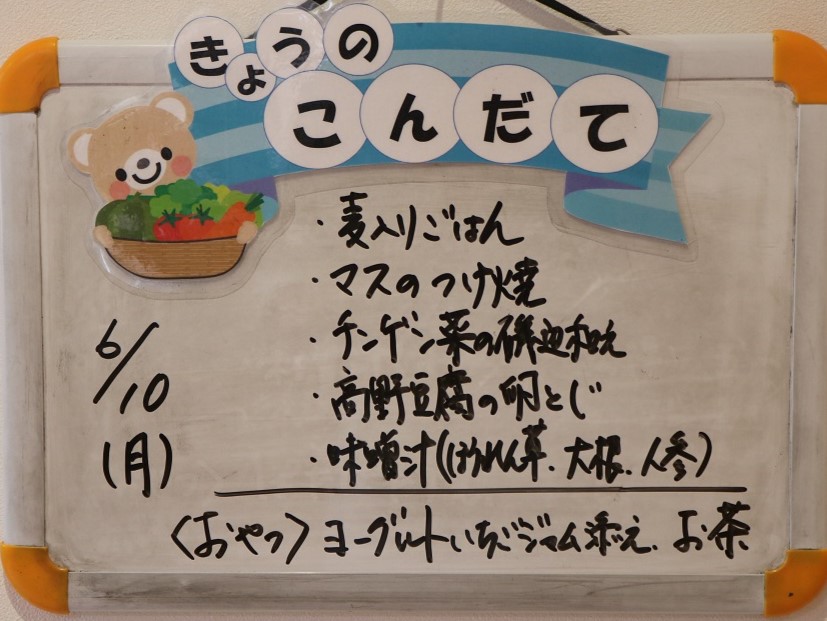 きょうの
こんだて
・麦入りごはん
・マスのつけ焼
・チンゲン菜の磯辺和え
・高野豆腐の卵とじ
・味噌汁(ほうれん草、大根、人参)
6/10
(月)
〈おやつ〉ヨーグルトいちごジャム添え、お茶